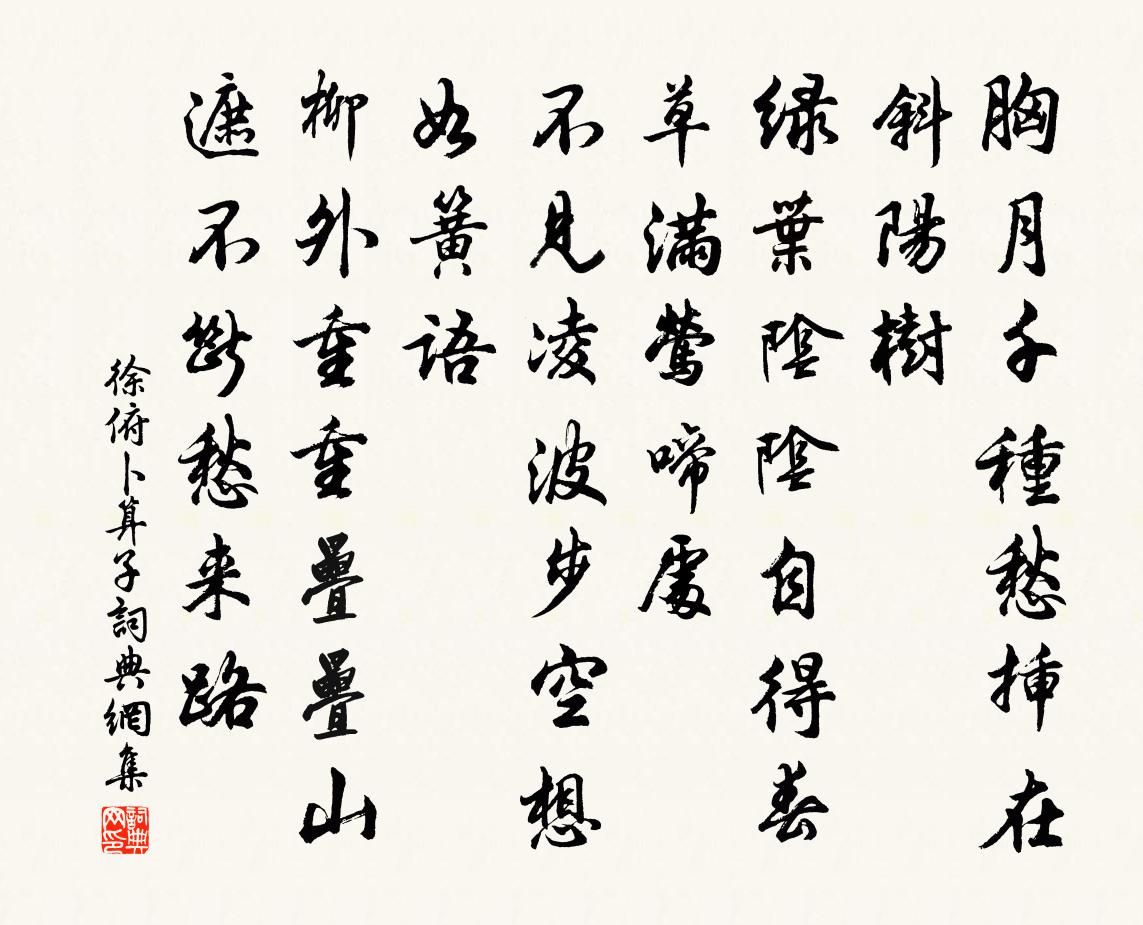 胸月千種愁插在
斜陽樹
緑葉陰陰自得春
草滿鶯啼處
不見凌波步空想
如簧語
柳外重重疊疊山
遮不斷愁来路
徐俯卜算子詞典網集
詞典網印